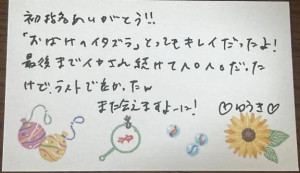 初指名ありがとう!!
「おばけのイタズラ」とってもキレイだったよ!
最後までイカされ続けてヘロヘロだった
けど、ラストで良かったw
また会えますよーに!
♡ゆうき♡